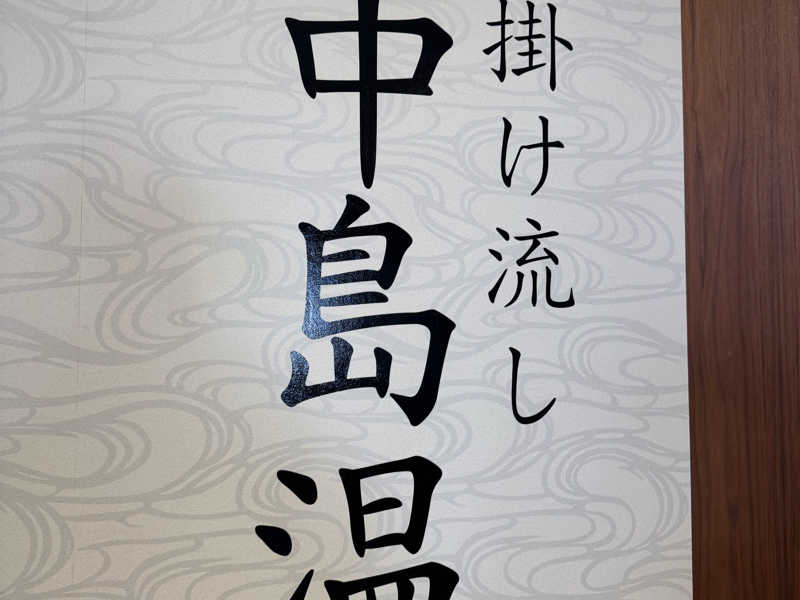 掛け流し
中島温